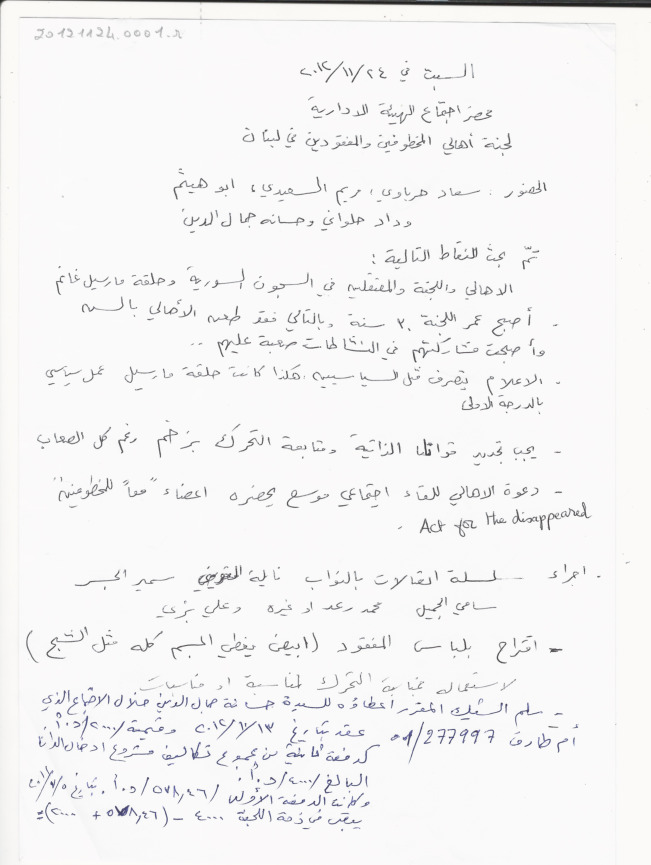 20121124.0001.r
السبت في ٢٠١٢/١١/٢٤
محضر اجتماع الهيئة الادارية
لجنة أهالي المخطوفين والمفقودين في لبنان
الحضور : سعاد هرباوي، مريم السعيدي، ابو هيثم
وداد حلواني وحسانه جمال الدين
تمّ بحث النقاط التالية :
الاهالي واللجنة والمعتقلين في السجون السورية وحلقة مارسيل غانم
- أصبح عمر اللجنة ٣٠ سنة وبالتالي فقد طعن الأهالي بالسن
وأصبحت مشاركتهم في النشاطات صعبة عليهم ..
- الاعلام يتصرف مثل السياسيين، هكذا كانت حلقة مارسيل عمل سياسي
بالدرجة الاولى
- يجب تجديد قواتنا الذاتية ومتابعة التحرك بزخم رغم كل الصعاب
- دعوة الاهالي للقاء اجتماعي موسع يحضره اعضاء "معاً للمخطوفين"
Act for the disappeared .
. اجراء سلسلة اتصالات بالنواب نايلة سمير الجسر
سامي الجميل محمد رعد او غيره وعلي بزي
- اقتراح بلباس المفقود (ابيض يغطي الجسم كله مثل الشبح)
لاستعماله التحرك لمناسبة او مناسبات
- سلم الشيك المقرر اعطاؤه للسيدة حسانة جمال الدين خلال الاجتماع الذي
عقد بتاريخ ٢٠١٢/١١/١٣ وقيمته /٢٠٠٠/د.أ
أم طارق 277997/01
كدفعة ثانية من مجموع تكاليف مشروع ادخال الداتا
البالغ /٤٠٠٠/د.أ.
وكانت الدفعة الأولى /٥٧٨,٤٦/د.أ. بتاريخ
يبقى في ذمة اللجنة ٤٠٠٠ - (٥٧٨,٤٦ + ٢٠٠٠) =